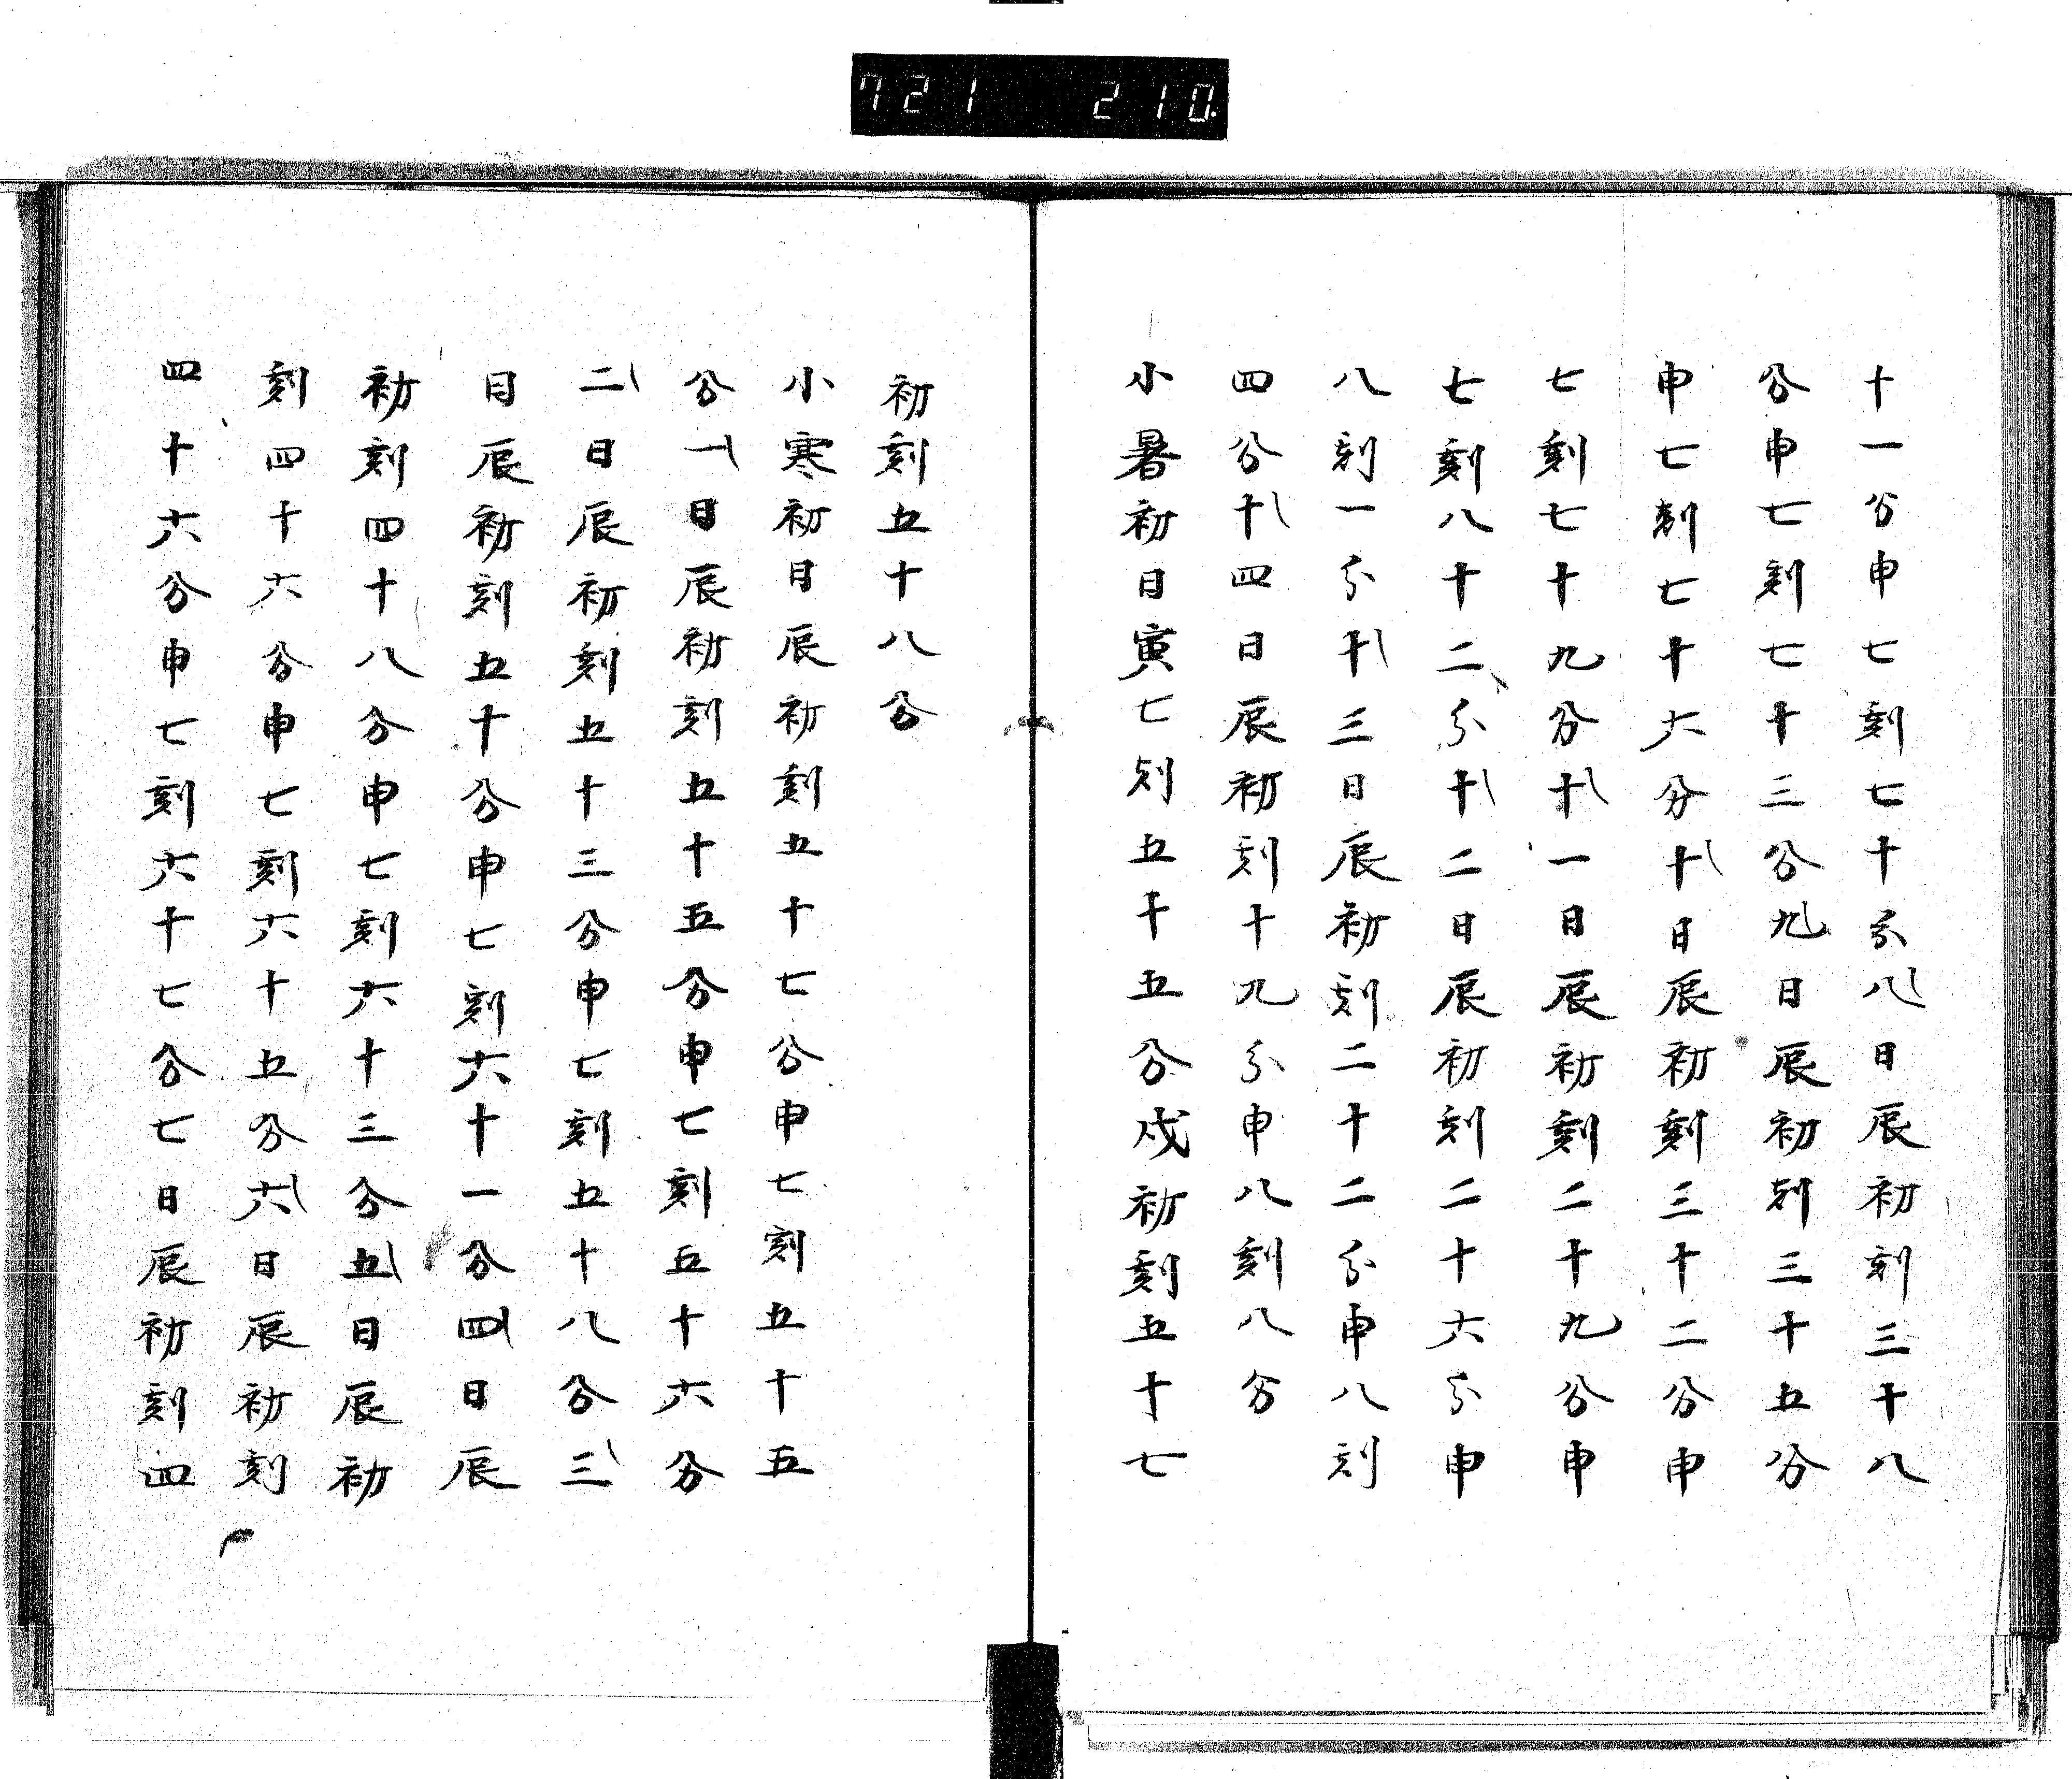 721 210
十一分申七刻七十分八日辰初刻三十八
分申七刻七十三分九日辰初刻三十五分
申七刻七十六分十日辰初刻三十二分申
七刻七十九分十一日辰初刻二十九分申
七刻八十二分十二日辰初刻二十六分申
八刻一分十三日辰初刻二十二分申八刻
四分十四日辰初刻十九分申八刻八分
小暑初日寅七刻五十五分戌初刻五十七
初刻五十八分
小寒初日辰初刻五十七分申七刻五十五
分一日辰初刻五十五分申七刻五十六分
二日辰初刻五十三分申七刻五十八分三
日辰初刻五十分申七刻六十一分四日辰
初刻四十八分申七刻六十三分五日辰初
刻四十六分申七刻六十五分六日辰初刻
四十六分申七刻六十七分七日辰初刻四